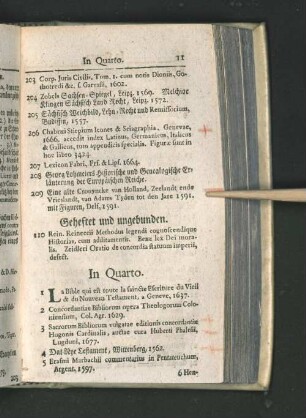 In Quarto. 11
203 Corp. Juris Civilis, Tom. 1. cum notis Dionis. Go-
thofredi &c. f. Garnin, 1602.
204 Zobels Sachsen-Spiegel, Leipz. 1569. Melchior
Klingen Sächsisch Land-Recht, Leipz. 1572.
205 Sächsisch Weichbild, Lehn-Recht und Remissorium,
Budissin, 1557.
206 Chabotii Stirpium Icones & Sciagraphia. Genevae,
1666. accedit index Latinus, Germanicus, Italicus
& Gallicus, tum appendicis specialis. Figuræ sunt in
hoc libro 3424.
207 Lexicon Fabri, Frf. & Lipf. 1664.
208 Georg Lohmeiers Historische und Genealogische Er-
läuterung der Europäischen Reiche.
209 Eine alte Cronicke van Holland, Zeelandt ende
Vrieslandt, van Adam tot den Jare 1591.
mit Figuren, Delf, 1591.
Geheftet und ungebunden.
110 Rein. Reineccii Methodus legendi cognoscendique
Historias, cum additamentis.
ralia. Zeidleri Oratio de statum imperii,
defect.
In Quarto.
1 La Bible qui est toute la saincte Escriture du Vieil
& du Nouveau Testament, a Geneve, 1637.
2 Concordantiæ Bibliorum opera Theologorum Colo-
niensium, Col. Agr. 1629.
3 Sacrorum Bibliorum vulgatæ editionis concordantiæ
Hugonis Cardinalis, auctæ cura Huberti Phalesii,
Lugduni, 1677.
4 Dat Olde Testament, Wittenberg, 1562.
5 Erasmi Marbachii commentarius in Pentateuchum,
Argent. 1597.
6 Hen-